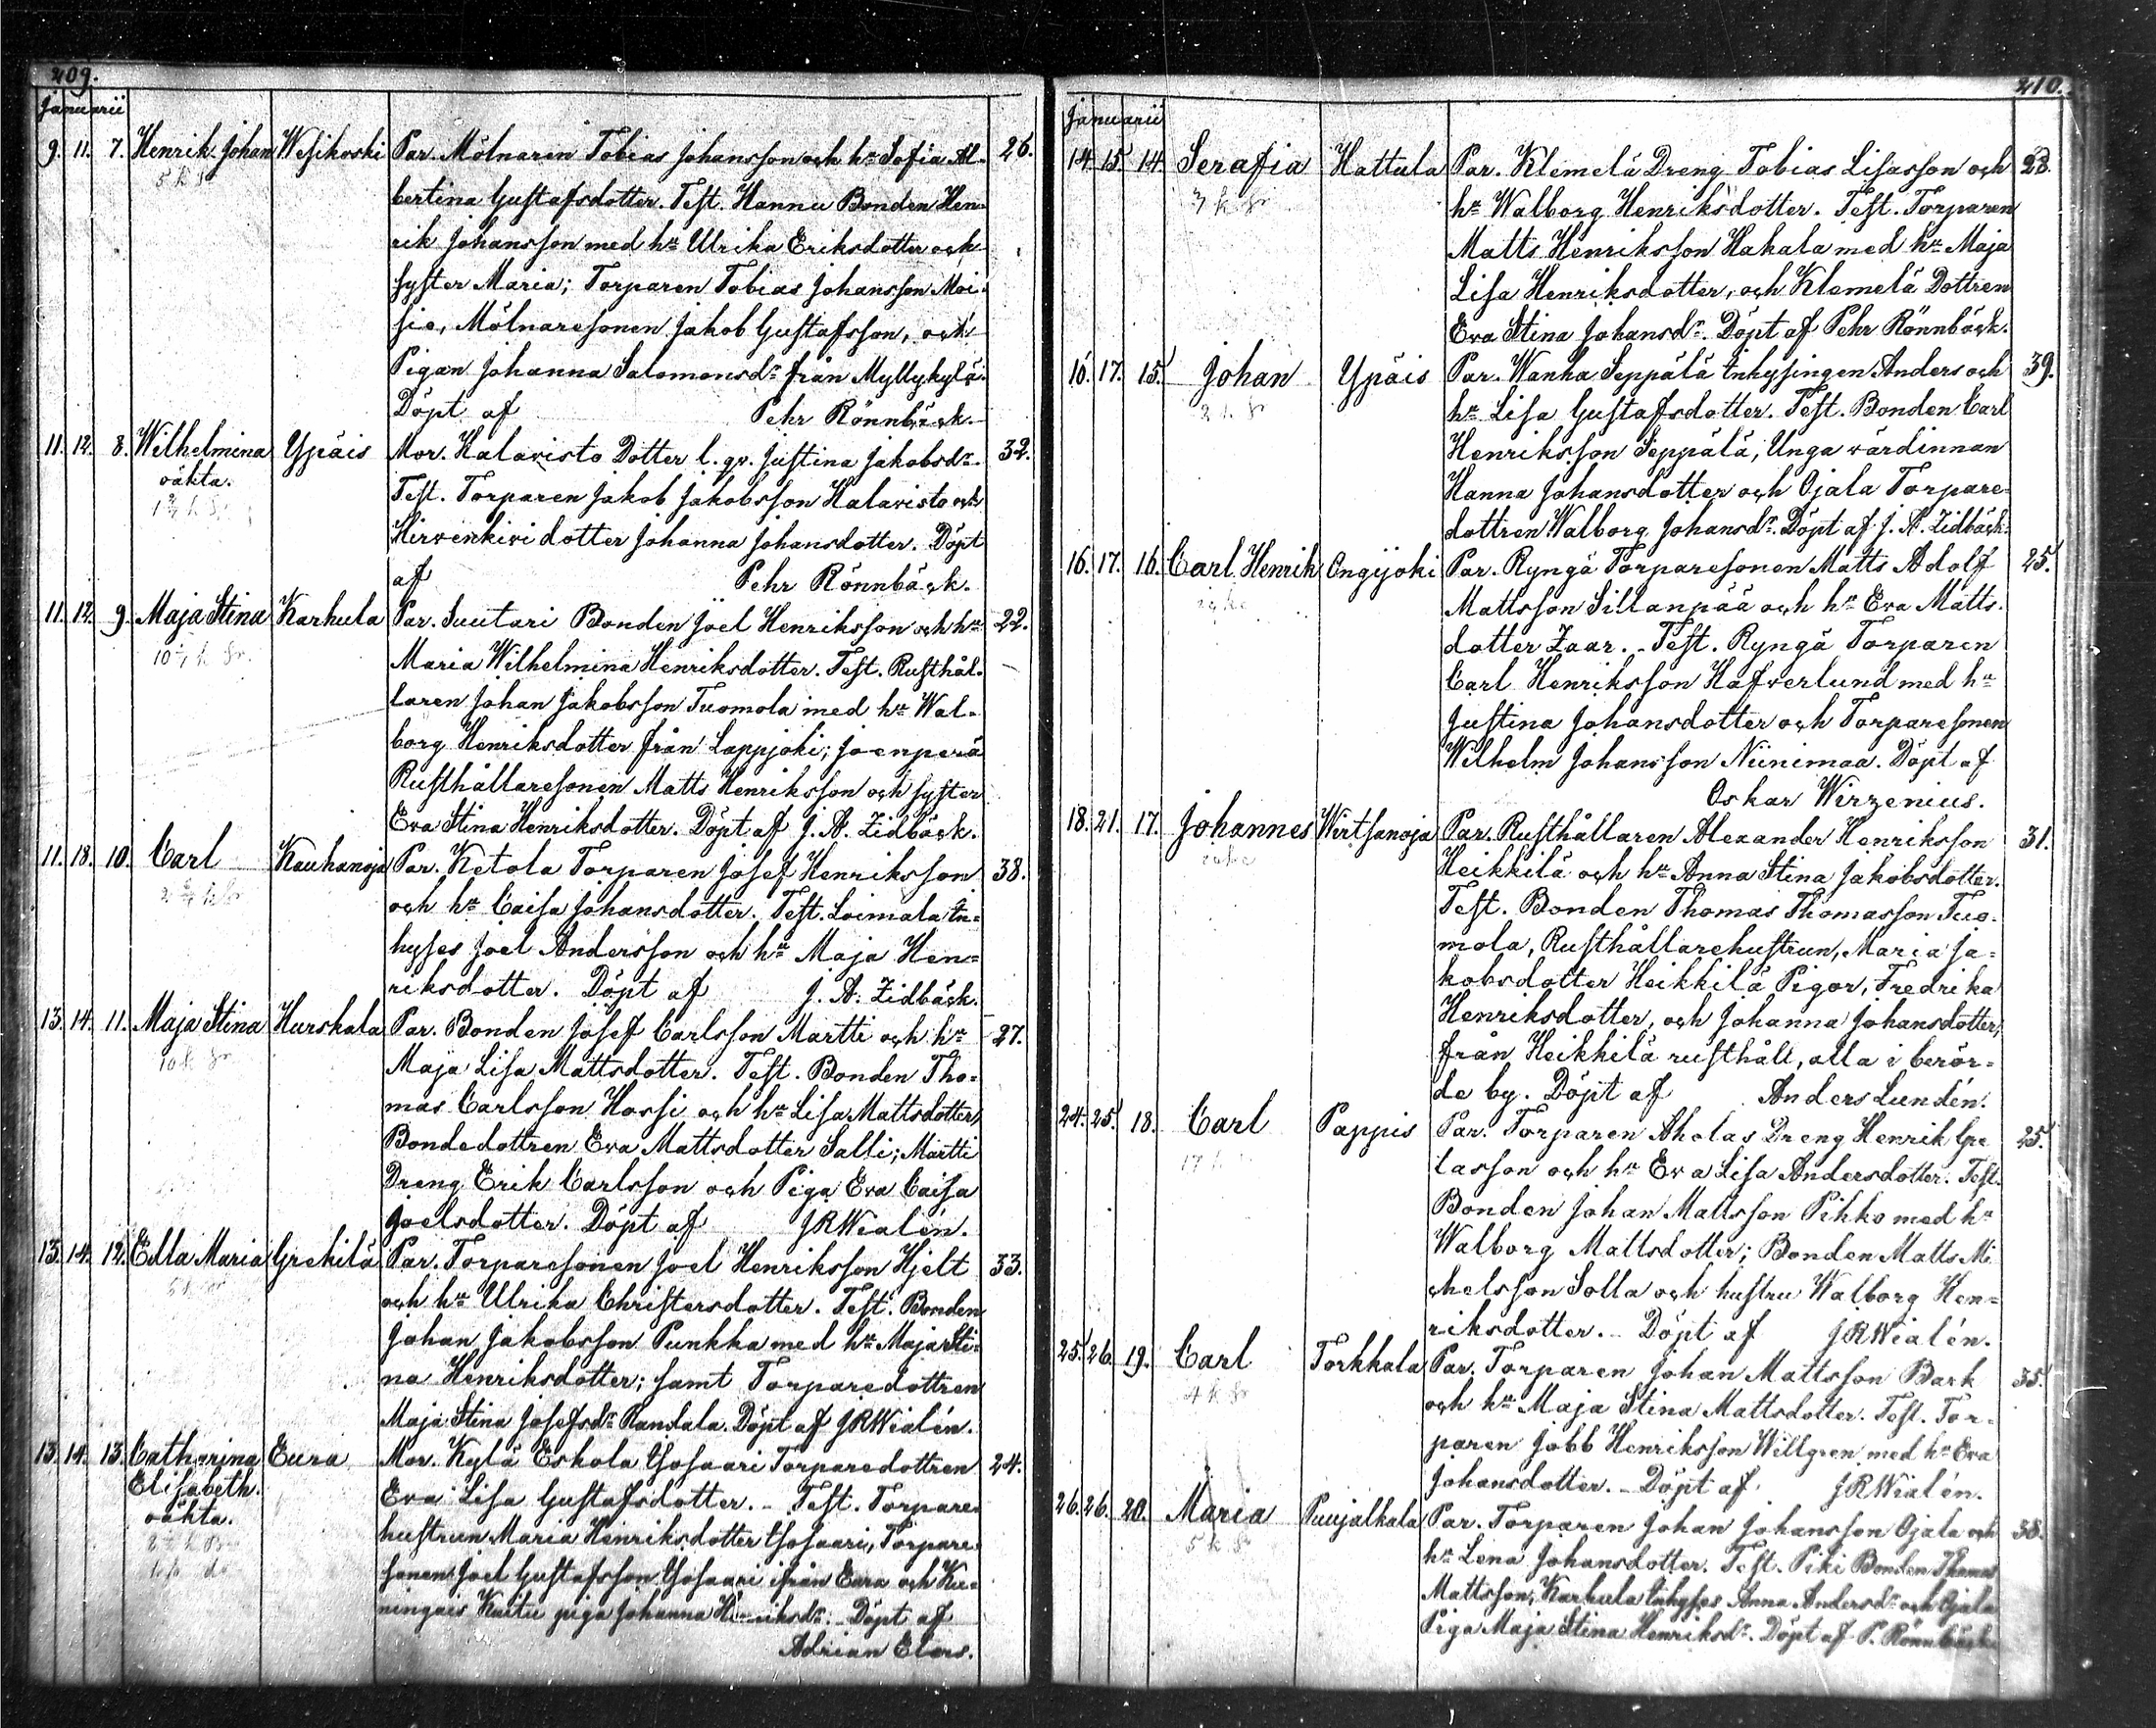 209.
Januarii
9. 11. 7. Henrik Johan Wesikoski Par. Mölnaren Tobias Johansson och hu Sofia Al- 26.
bertina Gustafsdotter. Test. Hannu Bonden Hen-
rik Johansson med hu Ulrika Eriksdotter och
syster Maria; Torparen Tobias Johansson Moi-
sio, Mölnaresonen Jakob Gustafsson, och
Pigan Johanna Salomonsdr från Myllykylä.
Döpt af Pehr Rönnbäck.
11. 12. 8. Wilhelmina Ypäis Mor. Kalavisto Dotter l. qv. Justina Jakobsdr. 32.
oäkta. Test. Torparen Jakob Jakobsson Kalavisto och
Hirvenkivi dotter Johanna Johansdotter. Döpt
af Pehr Rönnbäck.
11. 12. 9. Maja Stina Karhula Par. Suutari Bonden Joel Henriksson och hu 22.
Maria Wilhelmina Henriksdotter. Test. Rusthål-
laren Johan Jakobsson Tuomola med hu Wal-
borg Henriksdotter från Lappjoki; Joenperä
Rusthållaresonen Matts Henriksson och syster
Eva Stina Henriksdotter. Döpt af J. A. Zidbäck.
11. 18. 10. Carl Kauhanoja Par. Ketola Torparen Josef Henriksson 38.
och hu Caisa Johansdotter. Test. Loimala In-
hyses Joel Andersson och hu Maja Hen-
riksdotter. Döpt af J. A. Zidbäck.
13. 14. 11. Maja Stina Hurskala Par. Bonden Josef Carlsson Martti och hu 27.
Maja Lisa Mattsdotter. Test. Bonden Tho-
mas Carlsson Hossi och hu Lisa Mattsdotter,
Bondedottren Eva Mattsdotter Salli; Martti
Dreng Erik Carlsson och Piga Eva Caisa
Joelsdotter. Döpt af JRWialén.
13. 14. 12. Edla Maria Grekilä Par. Torparesonen Joel Henriksson Hjelt 33.
och hu Ulrika Christersdotter. Test. Bonden
Johan Jakobsson Punkka med hu Maja Sti-
na Henriksdotter; samt Torparedottren
Maja Stina Josefsdr Randala. Döpt af JRWialén.
13. 14. 13. Catharina Eura Mor. Kylä Eskola Isosaari Torparedottren 24.
Elisabeth. Eva Lisa Gustafsdotter. - Test. Torpare-
oäkta. hustrun Maria Henriksdotter Isosaari, Torpare-
sonen Joel Gustafsson Isosaari ifrån Eura och Ku-
ningais Kaitu piga Johanna Henriksdr. Döpt af
Adrian Elors.
210.
Januarii
14. 15. 14. Serafia Hattula Par. Klemelä Dreng Tobias Lisasson och 28.
hu Walborg Henriksdotter. Test. Torparen
Matts Henriksson Hakala med hu Maja
Lisa Henriksdotter, och Klemelä Dottren
Eva Stina Johansdr. Döpt af Pehr Rönnbäck.
16. 17. 15. Johan Ypäis Par. Wanha Seppälä Inhysingen Anders och 39.
hu Lisa Gustafsdotter. Test. Bonden Carl
Henriksson Seppälä, Unga värdinnan
Hanna Johansdotter och Ojala Torpare-
dottren Walborg Johansdr. Döpt af J. A. Zidbäck.
16. 17. 16. Carl Henrik Ongijoki Par. Ryngä Torparesonen Matts Adolf 25.
Mattsson Sillanpää och hu Eva Matts-
dotter Zaar. - Test. Ryngä Torparen
Carl Henriksson Hafverlund med hu
Justina Johansdotter och Torparesonen
Wilhelm Johansson Niinimaa. Döpt af
Oskar Wirzenius.
18. 21. 17. Johannes Wirtsanoja Par. Rusthållaren Alexander Henriksson 31.
Heikkilä och hu Anna Stina Jakobsdotter.
Test. Bonden Thomas Thomasson Tuo-
mola, Rusthållarehustrun, Maria Ja-
kobsdotter Heikkilä Pigor, Fredrika
Henriksdotter, och Johanna Johansdotter,
från Heikkilä rusthåll, alla i berör-
de by. Döpt af Anders Lundén.
24. 25. 18. Carl Pappis Par. Torparen Aholas Dreng Henrik Gre 25.
lasson och hu Eva Lisa Andersdotter. Test.
Bonden Johan Mattsson Pihko med hu
Walborg Mattsdotter; Bonden Matts Mi
chelsson Solla och hustru Walborg Hen-
riksdotter. - Döpt af JRWialén.
25. 26. 19. Carl Torkkala Par. Torparen Johan Mattsson Bark 35.
och hu Maja Stina Mattsdotter. Test. Tor-
paren Jobb Henriksson Willgren med hu Eva
Johansdotter. - Döpt af JRWialén.
26. 26. 20. Maria Puujalkala Par. Torparen Johan Johansson Ojala och 38.
hu Lena Johansdotter. Test. Piki Bonden Thomas
Mattsson, Karhula Inhyses Anna Andersdr och Ojala
Piga Maja Stina Henriksdr. Döpt af P. Rönnbäck